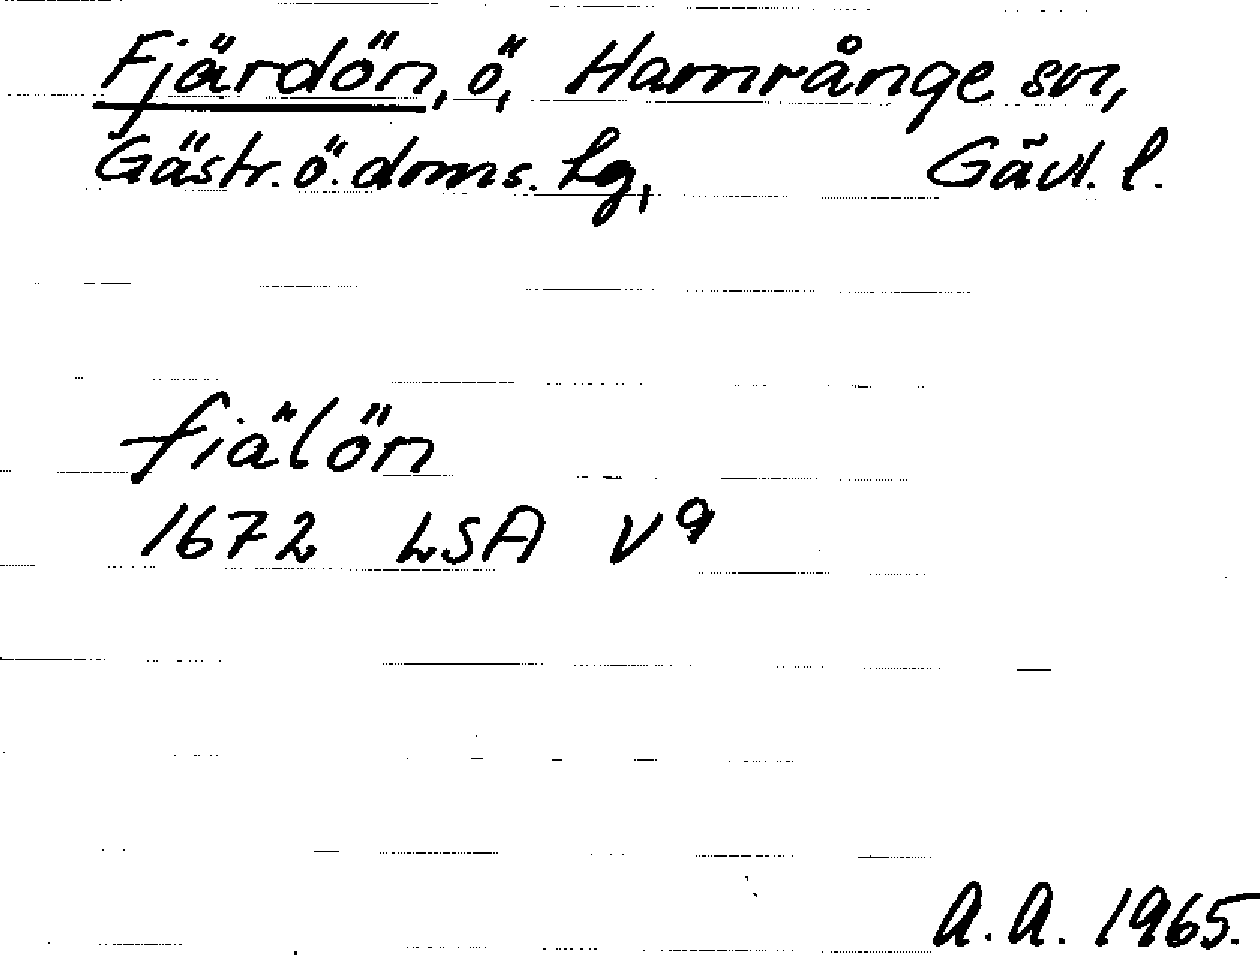 Fjärdön, ö, Hamrånge sn,
Gästr. ö. doms. lg, Gävl. l.
fiälön
1672 LSA V 9
A.A. 1965.